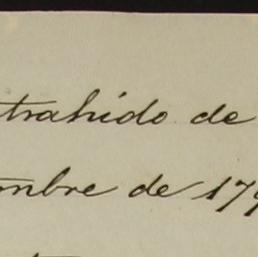 trahido de
mbre de 179